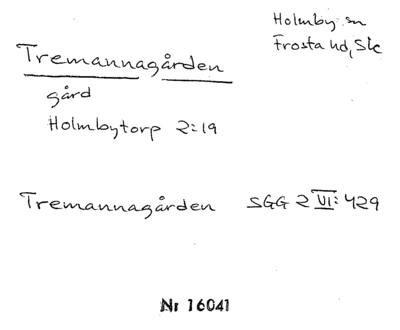 Holmby sn
Frosta hd, Sk
Tremannagården
gård
Holmbytorp 2:19
Tremannagården SGG 2 VI: 429
Nr 16041